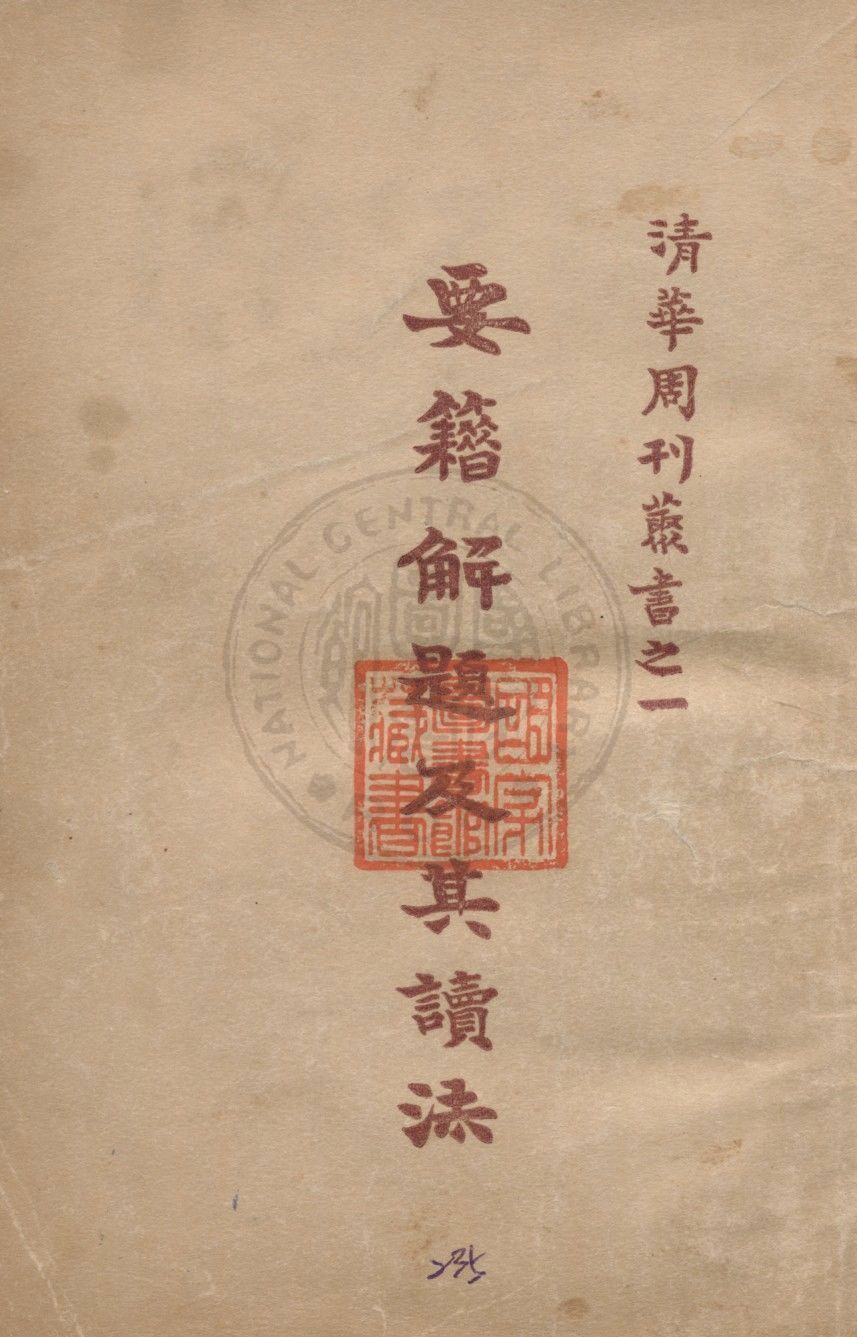 清華周刊叢書之一
要籍解題及其讀法
NATIONAL CENTRAL LIBRARY
國家圖書館藏書
235